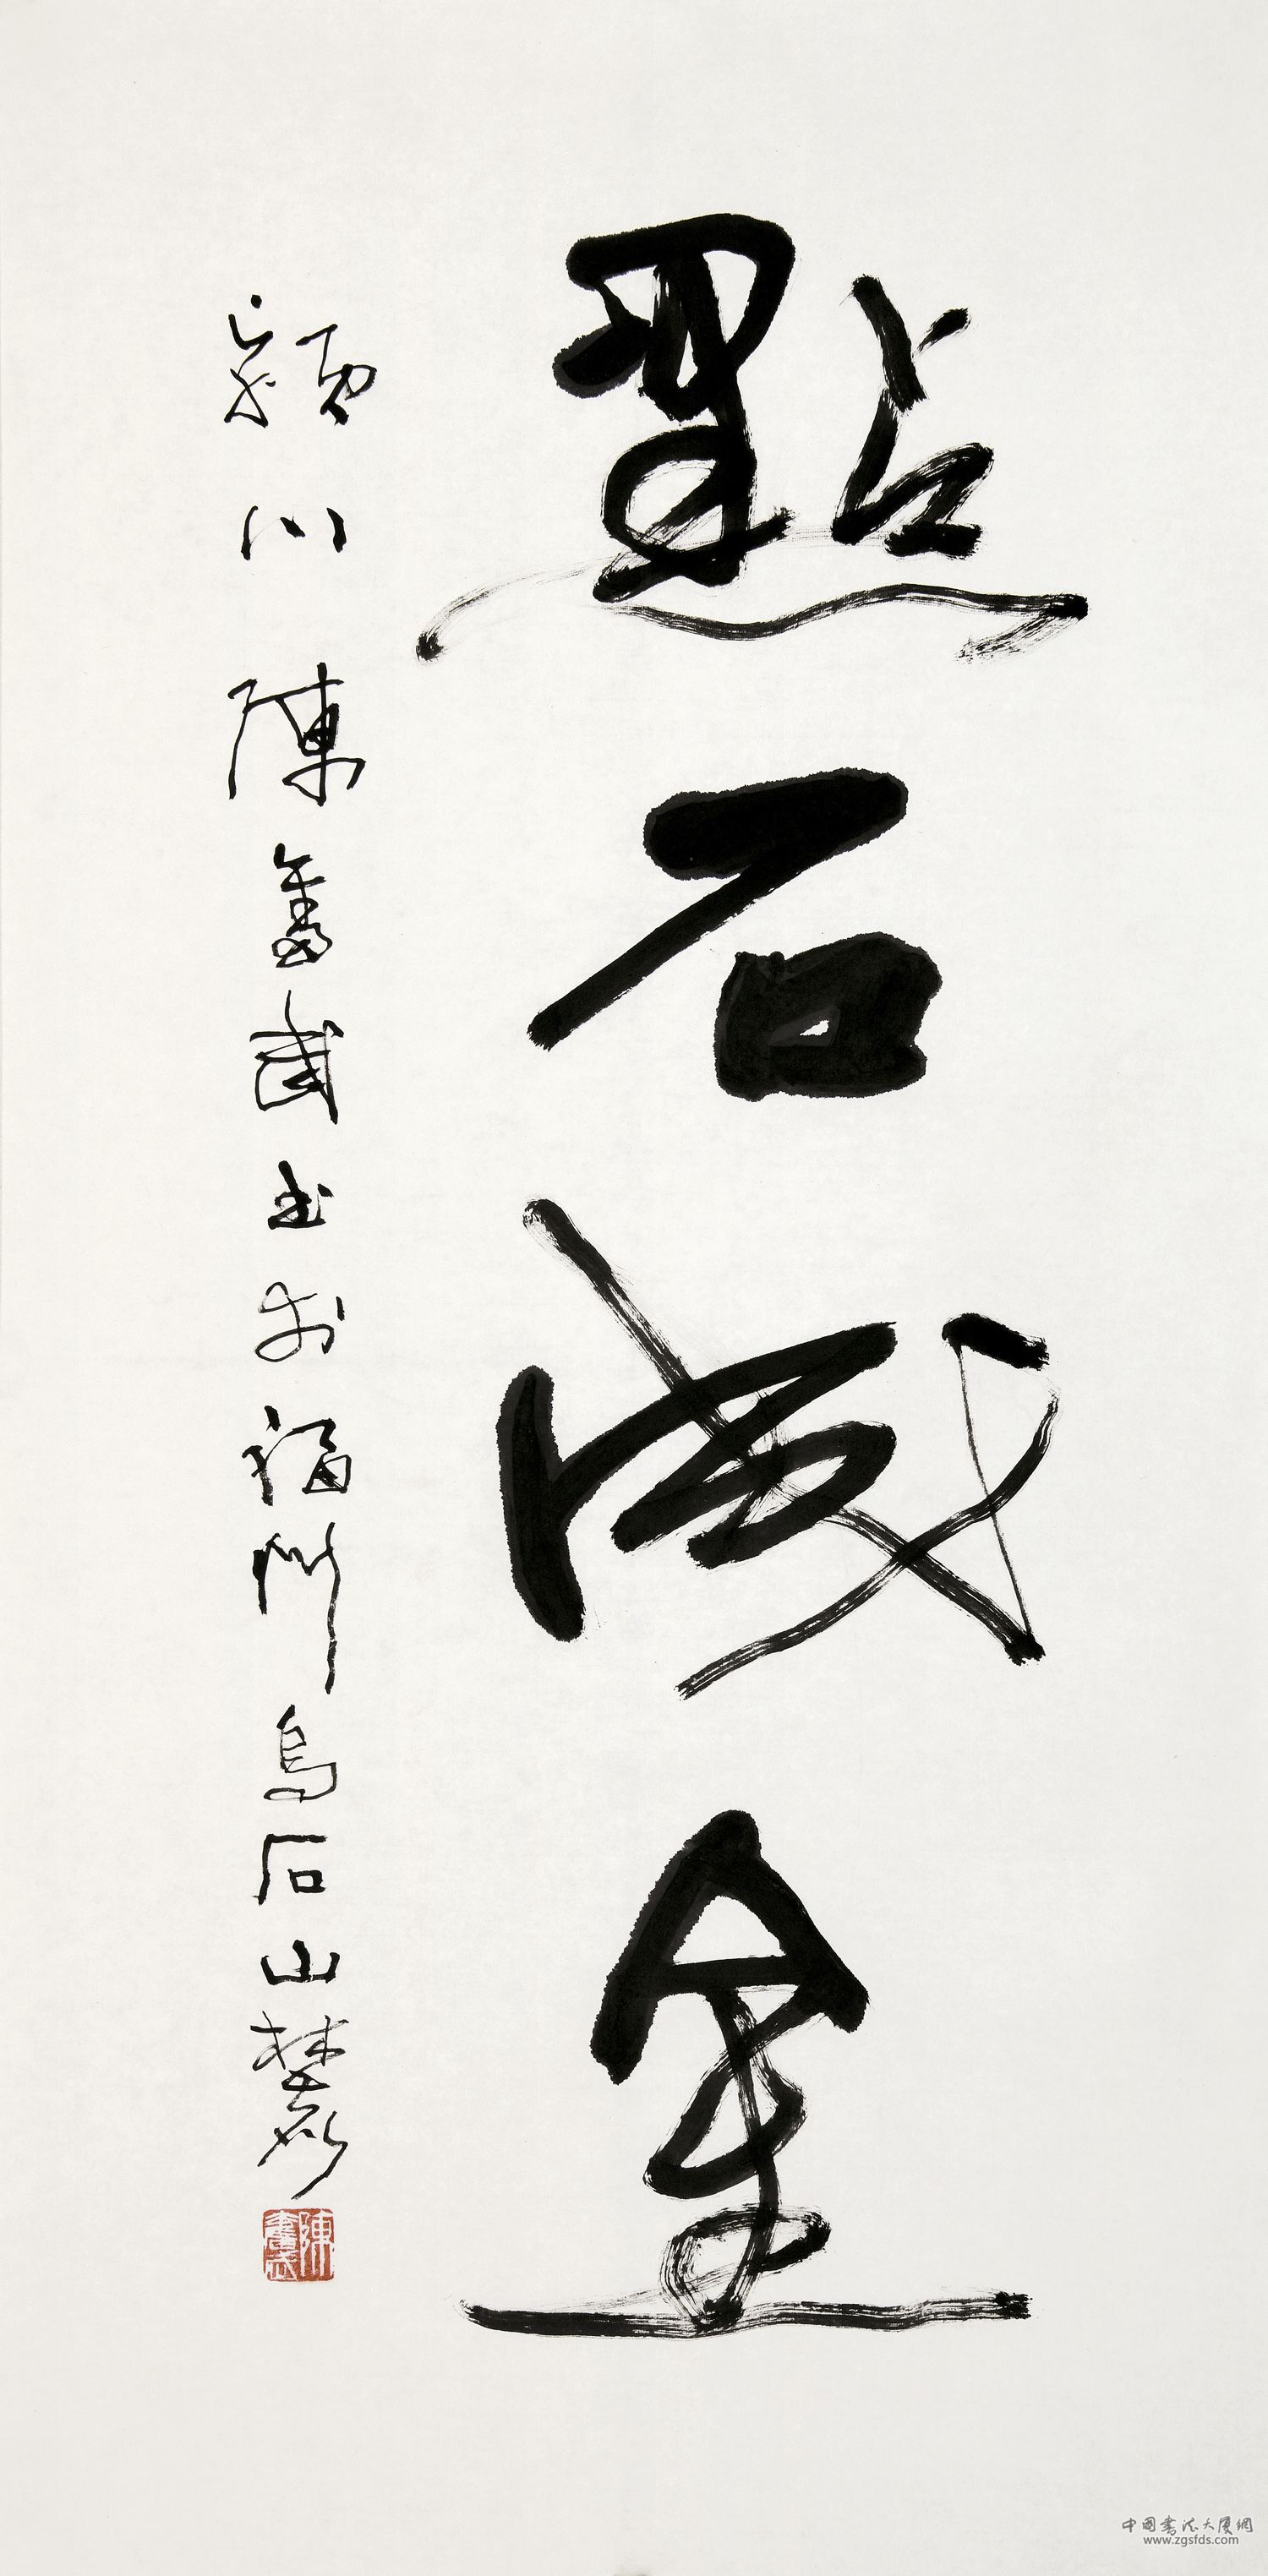 點石成金
潁川陳奮武書於福州烏石山麓
陳奮武
中国書法大厦網
www.zgsfds.com